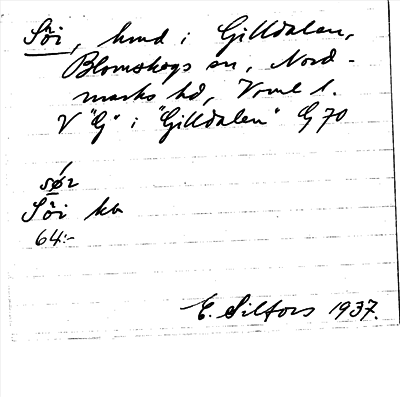 Söi, hmd i Gilldalen,
Blomskogs sn, Nord-
marks hd, Vrml l.
V "G" i "Gilldalen" G 70
Söi kb
64:-
E. Silfors 1937.